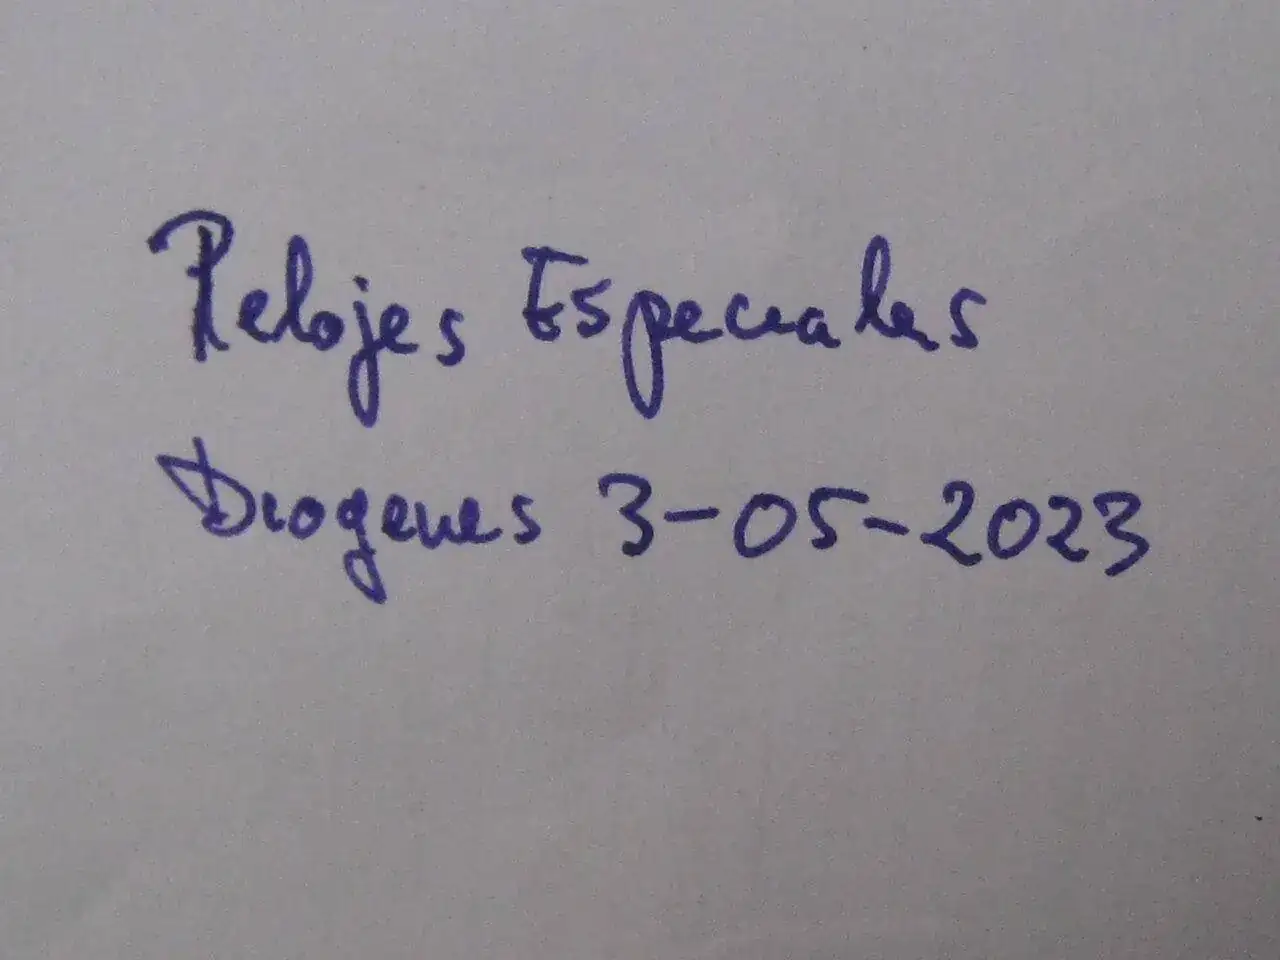 Relojes Especiales
Diogenes 3-05-2023